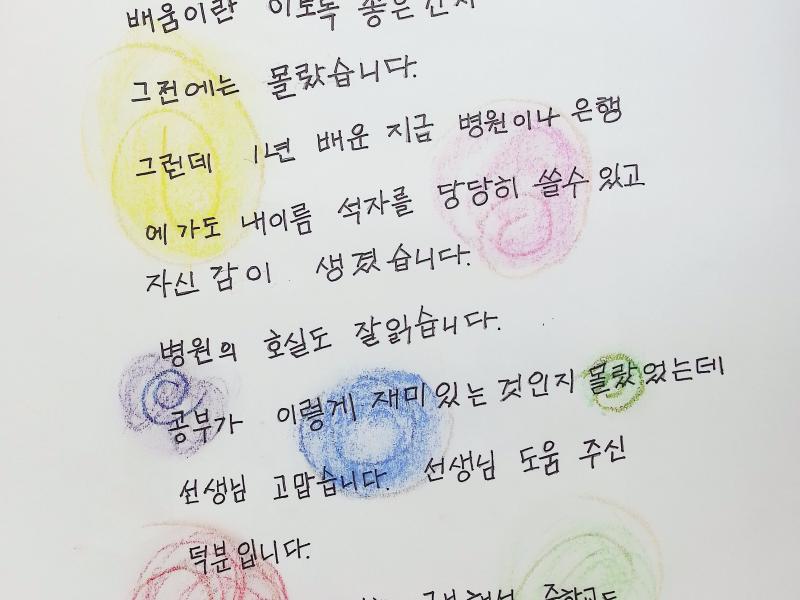 배움이란 이토록 좋은
그전에는 몰랐습니다.
그런데 1년 배윤 지금 병원이나 은행
에 가도 내이름 석자를 당당히 쓸수 있고
자신감이 생겼습니다.
병원의 호실도 잘읽습니다.
공부가 이렇게 재미있는 것인지 몰랐었는데
선생님 고맙습니다. 선생님 도움 주신
덕분입니다.